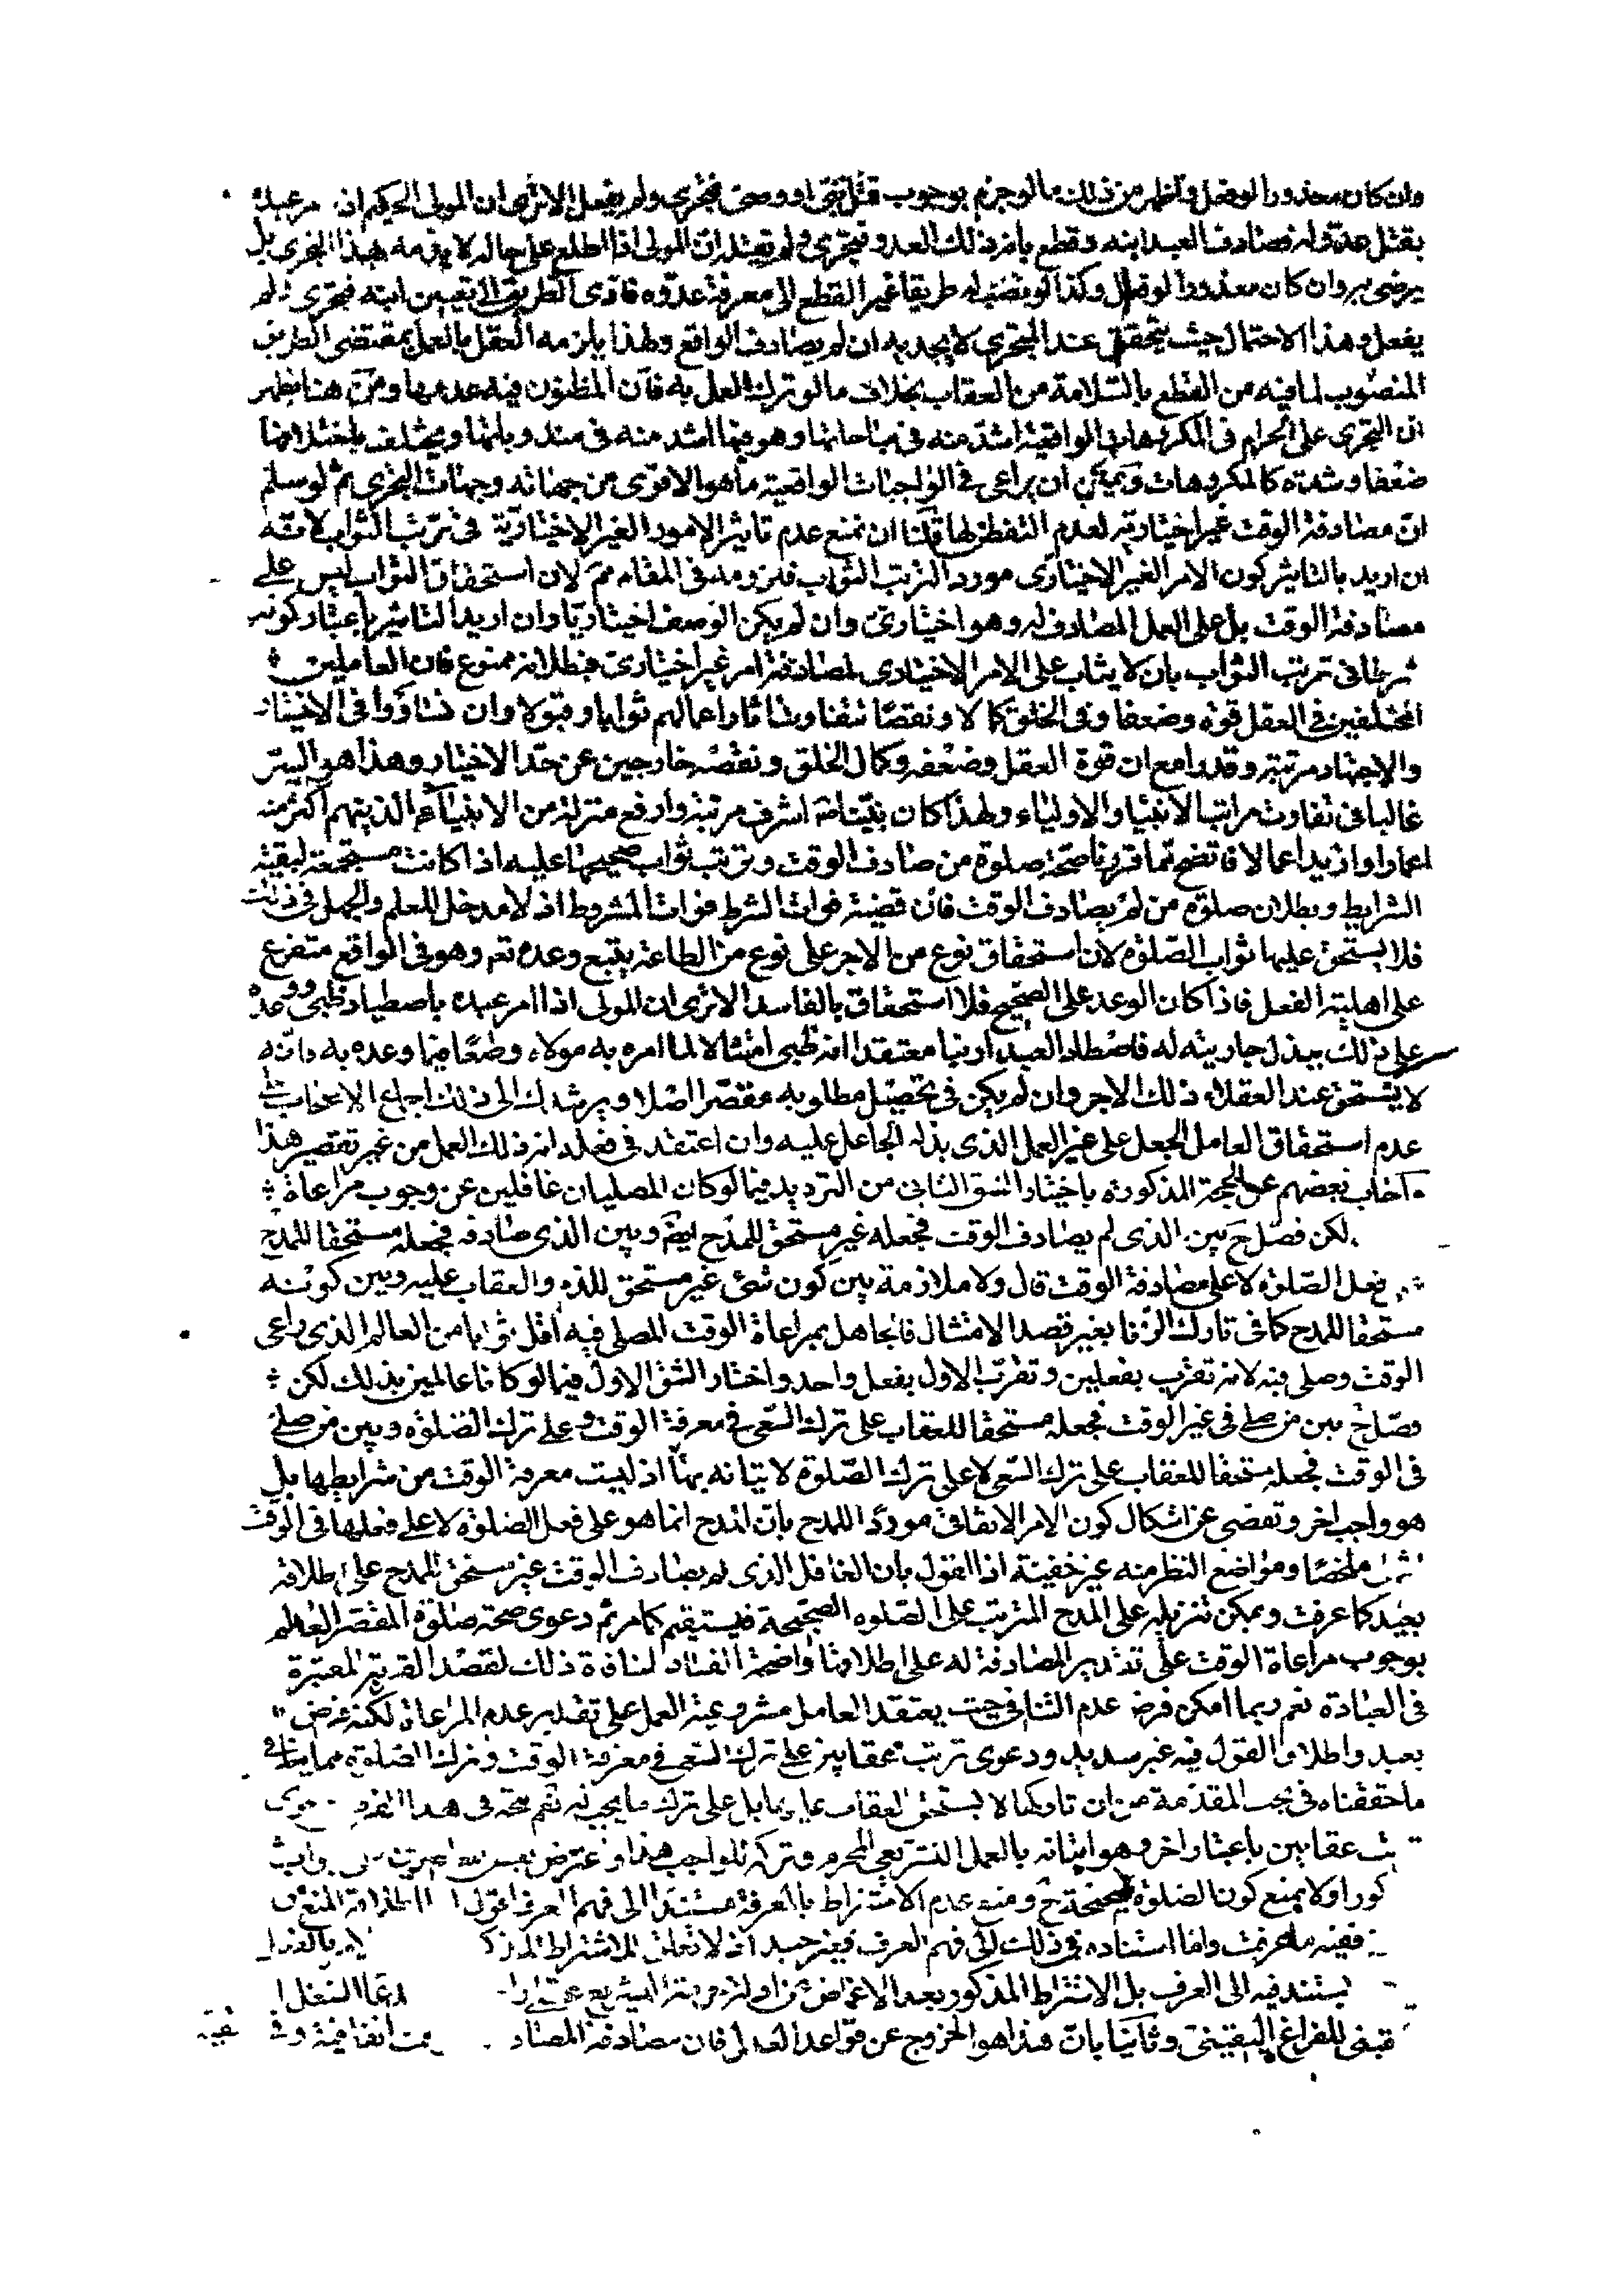 وان كان معذورا لو فعل واظهر من ذلك ما لو جزم بوجوب قتل نبى او وصى فتجرى ولم يفعل الا ترى ان المولى الحكيم اذا امر عبده
بقتل عدو له فصادف العبد ابنه وقطع بانه ذلك العدو فتجرى ولم يقتله ان المولى اذا اطلع على حاله لا يذمه بهذا التجرى بل
يرضى به وان كان معذورا لو فعل وكذا لو نصب له طريقا غير القطع الى معرفة عدوه فادى الطريق الى تعيين ابنه فتجرى ولم
يفعل وهذا الاحتمال حيث يتحقق عند المتجرى لا يجديه ان لم يصادف الواقع ولهذا يلزمه العقل بالعمل بمقتضى الطريق
المنصوب لما فيه من القطع بالسلامة من العقاب بخلاف ما لو ترك العمل به فان المظنون فيه عدمها ومن هنا يظهر
ان التجرى على الحرام فى المكروهات الواقعية اشد منه فى مباحاتها وهو فيها اشد منه فى مندوباتها ويختلف باختلافها
ضعفا وشدة كالمكروهات ويمكن ان يراعى فى الواجبات الواقعية ما هو الاقوى من جهاته وجهات التجرى ثم لو سلم
ان مصادفة الوقت غير اختيارية لعدم التفطن لها قلنا ان نمنع عدم تاثير الامور الغير الاختيارية فى ترتب الثواب لانه
ان اريد بالتاثير كون الامر الغير الاختيارى مورد الترتب الثواب فلزومه فى المقام مم لان استحقاق الثواب ليس على
مصادفة الوقت بل على العمل المصادف له وهو اختيارى وان لم يكن الوصف اختياريا وان اريد التاثير باعتبار كونه
شرطا فى ترتب الثواب بان لا يثاب على الامر الاختيارى لمصادفة امر غير اختيارى فبطلانه ممنوع فان العاملين
المختلفين فى العقل قوة وضعفا وفى الخلق كمالا ونقصا يتفاوتان اعمالهم ثوابا وقبولا وان تساووا فى الاختيار
والاجتهاد مرتبة وقدرا مع ان قوة العقل وضعفه وكمال الخلق ونقصه خارجين عن حد الاختيار وهذا هو السر
غالبا فى تفاوت مراتب الانبياء والاولياء ولهذا كان نبينا اشرف مرتبة وارفع منزلة من الانبياء الذينهم اكثر منه
اعمارا وازيد اعمالا فاتضح مما قررنا صحة صلوة من صادف الوقت وترتب ثواب صحيحها عليه اذا كانت مستجمعة لبقية
الشرايط وبطلان صلوة من لم يصادف الوقت فان قضية فوات الشرط فوات المشروط اذ لا مدخل للعلم والجهل فى ذلك
فلا يستحق عليها ثواب الصلوة لان استحقاق نوع من الاجر على نوع من الطاعة يتبع وعده تعم وهو فى الواقع متفرع
على اهلية الفعل فاذا كان الوعد على الصحيح فلا استحقاق بالفاسد الا ترى ان المولى اذا امر عبده باصطياد ظبى ووعده
على ذلك ببذل جاريته له فاصطاد العبد ارنبا معتقدا انه ظبى امتثالا لما امره به مولاه وطمعا فيما وعده به فانه
لا يستحق عند العقلاء ذلك الاجر وان لم يكن فى تحصيل مطلوبه مقصرا اصلا ويرشدك الى ذلك اجماع الاصحاب على
عدم استحقاق العامل الجعل على غير العمل الذى بذله الجاعل عليه وان اعتقد فى فعله انه ذلك العمل من غير تقصير هذا
واجاب بعضهم عن الحجة المذكورة باختيار الشق الثانى من الترديد فيما لو كان المصليان غافلين عن وجوب مراعاة
لكن فصل ح بين الذى لم يصادف الوقت فجعله غير مستحق للمدح ايضا وبين الذى صادفه فجعله مستحقا للمدح
فعل الصلوة لا على مصادفة الوقت قال ولا ملازمة بين كون شىء غير مستحق للذم والعقاب عليه وبين كونه
مستحقا للمدح كما فى تارك الزنا بغير قصد الامتثال فالجاهل بمراعاة الوقت المصلى فيه اقل ثوابا من العالم الذى راعى
الوقت وصلى فيه لانه تقرب بفعلين وتقرب الاول بفعل واحد واختار الشق الاول فيما لو كانا عالمين بذلك لكن
فصل ح بين من صلى فى غير الوقت فجعله مستحقا للعقاب على ترك السعى فى معرفة الوقت وعلى ترك الصلوة وبين من صلى
فى الوقت فجعله مستحقا للعقاب على ترك السعى لا على ترك الصلوة لاتيانه بها اذ ليست معرفة الوقت من شرايطها بل
هو واجب اخر وتفصى عن اشكال كون الامر الاتفاقى موردا للمدح بان المدح انما هو على فعل الصلوة لا على فعلها فى الوقت
ملخصا ومواضع النظر منه غير خفية اذ القول بان الغافل الذى لم يصادف الوقت غير مستحق للمدح على اطلاقه
بعيد كما عرفت ويمكن تنزيله على المدح المترتب على الصلوه الصحيحة فيستقيم كما مر ثم دعوى صحة صلوة المقصر العالم
بوجوب مراعاة الوقت على تقدير المصادفة له على اطلاقها واضحة الفساد لمنافاة ذلك لقصد القربة المعتبرة
فى العبادة نعم ربما امكن فرض عدم التنافى حيث يعتقد العامل مشروعية العمل على تقدير عدم المراعاة لكنه فرض
بعيد واطلاق القول فيه غير سديد ودعوى ترتب عقابين على ترك السعى فى معرفة الوقت وترك الصلوة مما ينافى
ما حققناه فى بحث المقدمة من ان تاركها لا يستحق العقاب عليها بل على ترك ما يجب له نعم يتجه فى هذا الفرض
عقابين باعتبار اخر وهو اتيانه بالعمل التشريعى المحرم وتركه للواجب
اولا بمنع كون الصلوة صحيحة ح ومنع عدم الاشتراط بالمعرفة مستندا الى فهم العرف
ففيه ما عرفت واما استناده فى ذلك الى فهم العرف فغير جيد اذ لا تعلق للاشتراط
يستند فيه الى العرف بل الاشتراط المذكور بعد الاغماض عن
للفراغ اليقينى وثانيا بان هذا هو الخروج عن قواعد العدل فان مصادفة